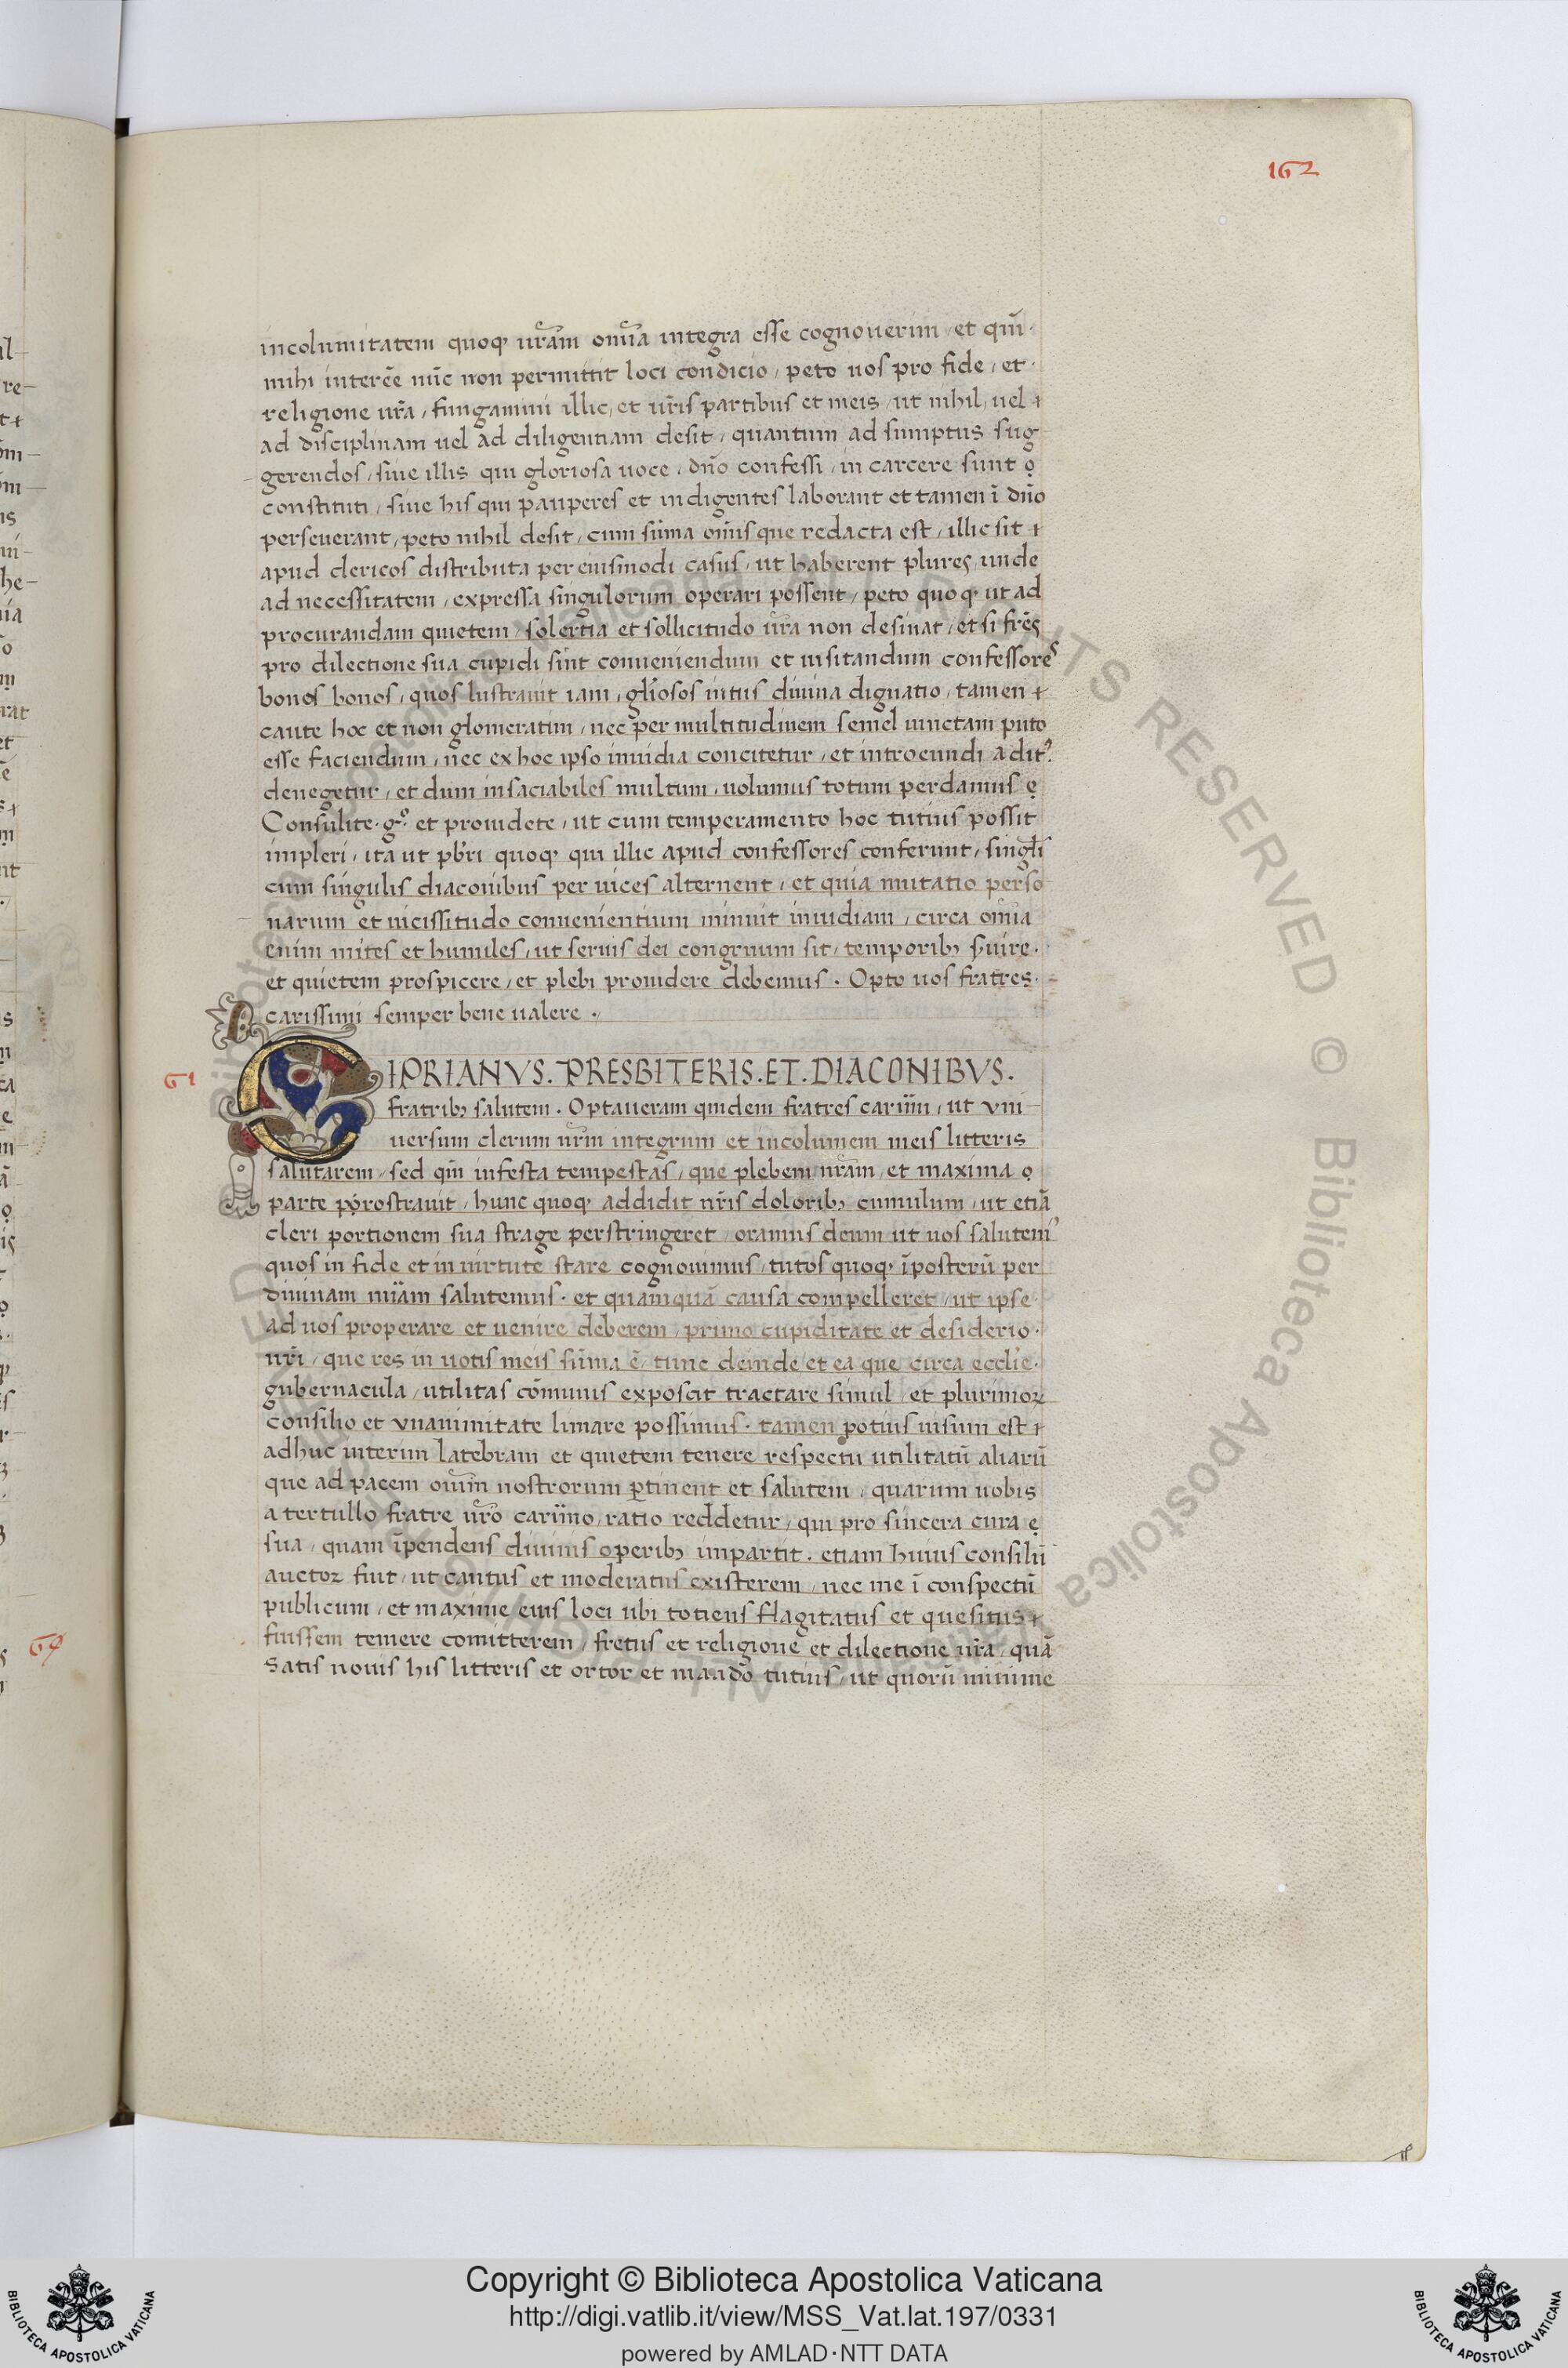 162
incolumitatem quoq; ur̃am om̃ia integra esse cognouerim, et qm̃
mihi interẽe nũc non permittit loci condicio, peto uos pro fide, et
religione ur̃a, fungamini illic, et ur̃is partibus et meis, ut nihil, uel
ad disciplinam uel ad diligentiam desit, quantum ad sumptus sug
gerendos, siue illis qui gloriosa uoce, dño confessi, in carcere sunt
constituti, siue his qui pauperes et indigentes laborant et tamen ĩ dño
perseuerant, peto nihil desit, cum sũma om̃is que redacta est, illic sit
apud clericos distributa per eiusmodi casus, ut haberent plures, unde
ad necessitatem, expressa singulorum operari possent, peto quoq; ut ad
procurandam quietem, solertia et sollicitudo ur̃a non desinat, et si frẽs
pro dilectione sua cupidi sint conueniendum et uisitandum confessores
bonos bonos, quos lustrauit iam, glĩosos intus diuina dignatio, tamen
caute hoc et non glomeratim, nec per multitudinem semel iunctam puto
esse faciendum, nec ex hoc ipso inuidia concitetur, et introeundi adit⁹
denegetur, et dum insaciabiles multum, uolumus totum perdamus
Consulite g° et prouidete, ut cum temperamento hoc tutius possit
impleri, ita ut pbr̃i quoq; qui illic apud confessores conferunt, singłi
cum singulis diaconibus per uices alternent, et quia mutatio perso
narum et uicissitudo conuenientium minuit inuidiam, circa om̃ia
enim mites et humiles, ut seruis dei congruum sit, temporibꝫ s̃uire.
et quietem prospicere, et plebi prouidere debemus. Opto uos fratres
carissimi semper bene ualere.
61
CIPRIANVS. PRESBITERIS. ET. DIACONIBVS.
fratribꝫ salutem. Optaueram quidem fratres cariiẽm, ut vni
uersum clerum ur̃m integrum et incolumem meis litteris
salutarem, sed qm̃ infesta tempestas, que plebem nr̃am, et maxima
parte p̣rostrauit, hunc quoq; addidit nr̃is doloribꝫ cumulum, ut etiã
cleri portionem sua strage perstringeret, oramus deum ut uos salutem
quos in fide et in uirtute stare cognouimus, tutos quoq; ĩposterũ per
diuinam mĩam salutemus. et quamquã causa compelleret, ut ipse
ad uos properare et uenire deberem, primo cupiditate et desiderio
ur̃i, que res in uotis meis sũma ẽ, tunc deinde et ea que circa eccłie
gubernacula, utilitas cõmunis exposcit tractare simul, et plurimoꝝ
consilio et vnanimitate limare possimus. tamen potius uisum est
adhuc interim latebram et quietem tenere respectu utilitatũ aliarũ
que ad pacem om̃im nostrorum ꝑtinent et salutem, quarum uobis
a tertullo fratre ur̃o cariĩmo, ratio reddetur, qui pro sincera cura
sua, quam ĩpendens diuinis operibꝫ impartit. etiam huius consilii
auctor fuit, ut cautus et moderatus existerem, nec me ĩ conspectũ
publicum, et maxime eius loci ubi totiens flagitatus et quesitus
fuissem temere comitterem, fretus et religione et dilectione ur̃a, quã
Satis noui his litteris et ortor et mando tutius, ut quorũ minime
64
Copyright © Biblioteca Apostolica Vaticana
http://digi.vatlib.it/view/MSS_Vat.lat.197/0331
powered by AMLAD·NTT DATA
BIBLIOTECA APOSTOLICA VATICANA
BIBLIOTECA APOSTOLICA VATICANA